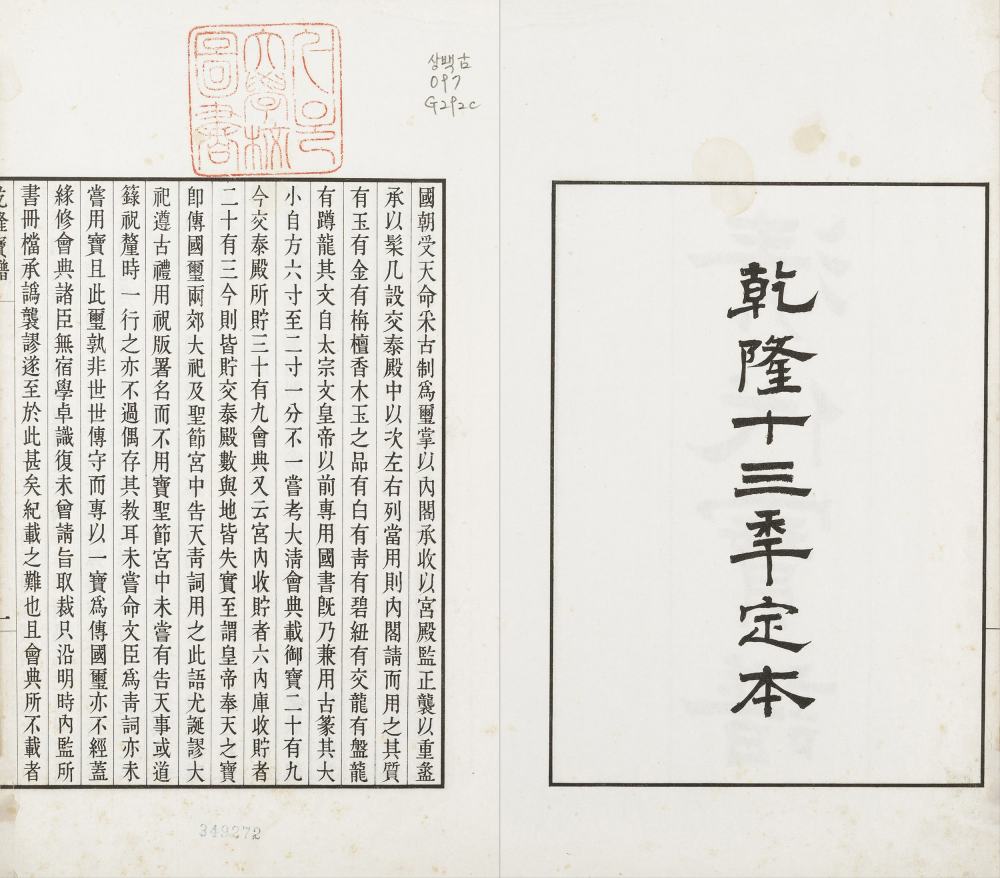 乾隆十三秊定本
서울
大學校
圖書
상백古
097
G292c
國朝受天命采古制爲璽掌以內閣承收以宮殿監正襲以重盝
承以髹几設交泰殿中以次左右列當用則內閣請而用之其質
有玉有金有栴檀香木玉之品有白有靑有碧紐有交龍有盤龍
有蹲龍其文自太宗文皇帝以前專用國書旣乃兼用古篆其大
小自方六寸至二寸一分不一嘗考大淸會典載御寶二十有九
今交泰殿所貯三十有九會典又云宮內收貯者六內庫收貯者
二十有三今則皆貯交泰殿數與地皆失實至謂皇帝奉天之寶
卽傳國璽兩郊大祀及聖節宮中告天靑詞用之此語尤誕謬大
祀遵古禮用祝版署名而不用寶聖節宮中未嘗有告天事或道
籙祝釐時一行之亦不過偶存其敎耳未嘗命文臣爲靑詞亦未
嘗用寶且此璽孰非世世傳守而專以一寶爲傳國璽亦不經蓋
緣修會典諸臣無宿學卓識復未曾請旨取裁只沿明時內監所
書冊檔承譌襲謬遂至於此甚矣紀載之難也且會典所不載者
乾隆寶譜
一
349272